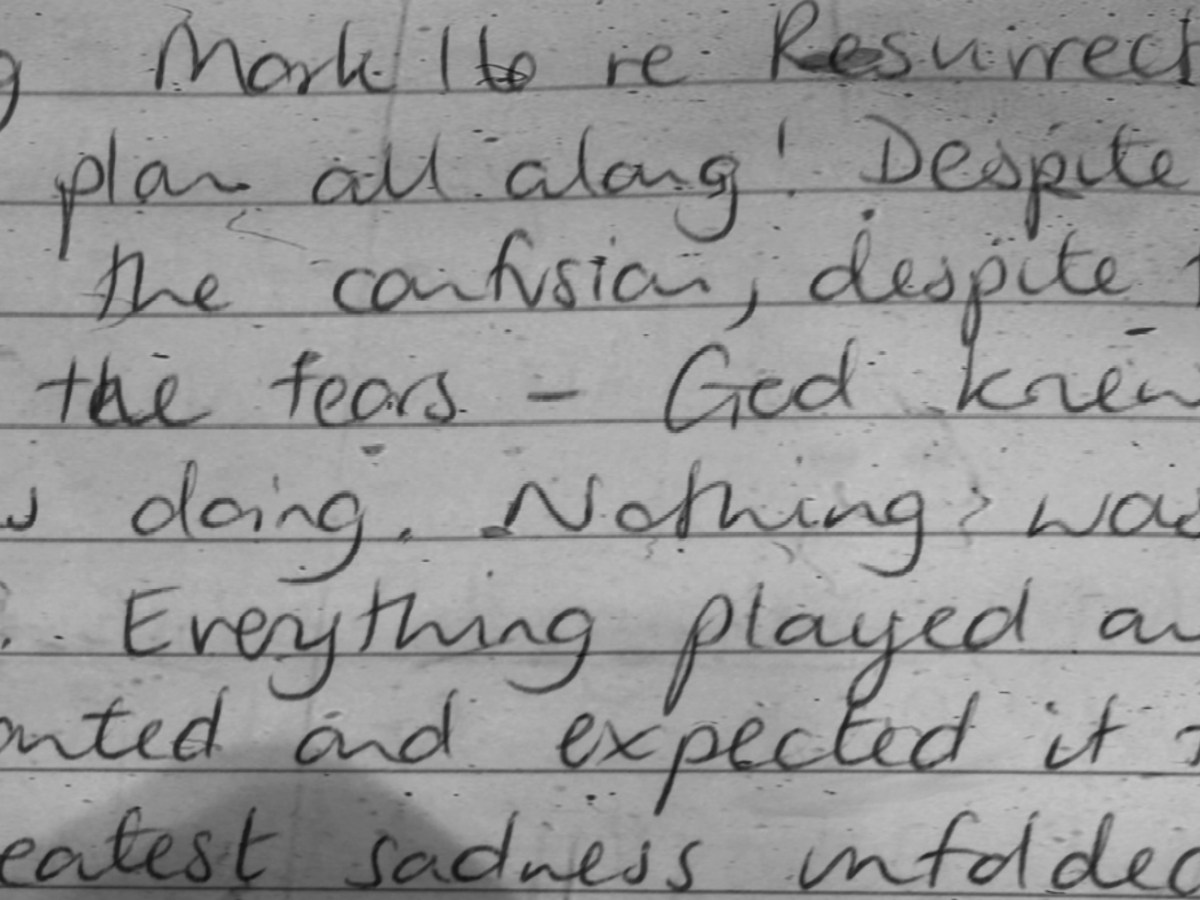 Mark 16 re Resurrect
plan all along! Despite
the confusion, despite
the fears - God knew
doing. Nothing was
. Everything played
anted and expected it
eatest sadness unfolded